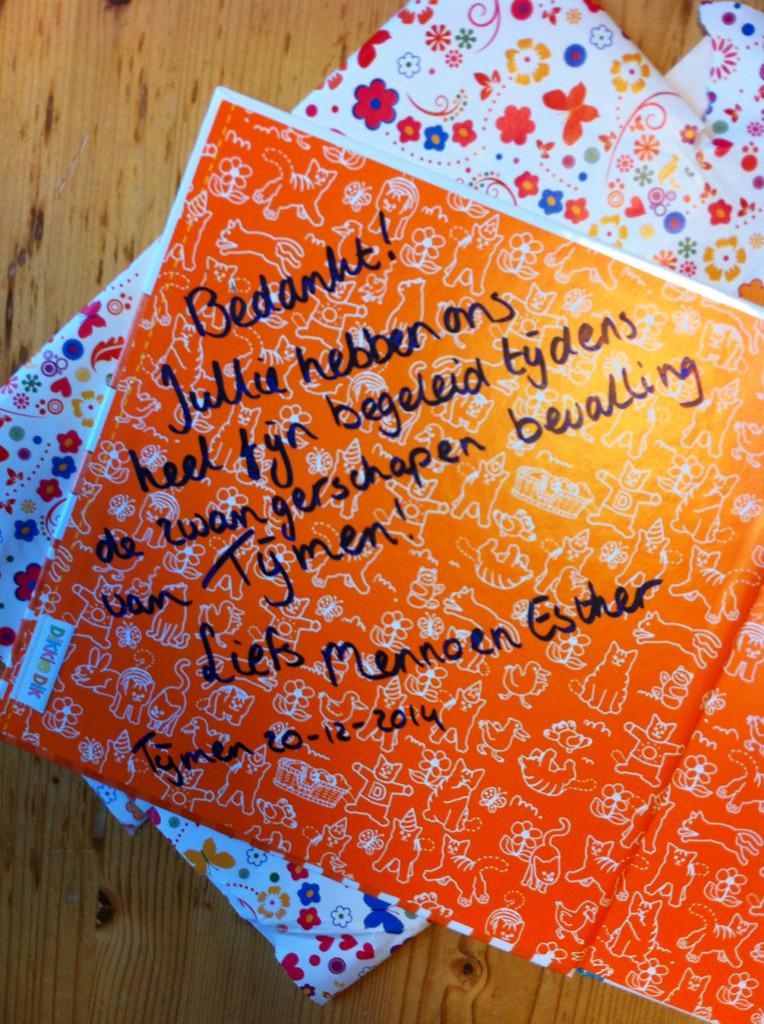 Bedankt!
Jullie hebben ons
heel fijn begeleid tijdens
de zwangerschap en bevalling
van Tijmen!
Liefs Menno en Esther
Tijmen 20-12-2014
DiKKiE DiK